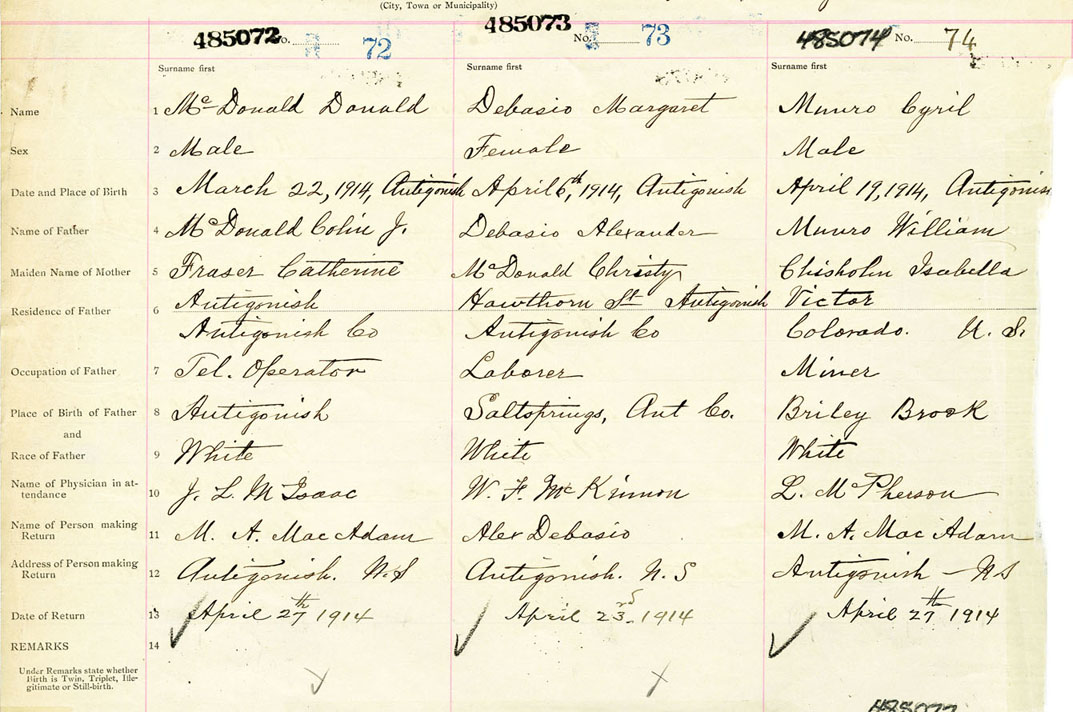 (City, Town or Municipality)
485072 No. 72 485073 No. 73 485074 No. 74
Surname first Surname first Surname first
Name 1 McDonald Donald Debasio Margaret Munro Cyril
Sex 2 Male Female Male
Date and Place of Birth 3 March 22, 1914, Antigonish April 6th, 1914, Antigonish April 19, 1914, Antigonish
Name of Father 4 McDonald Colin J. Debasio Alexander Munro William
Maiden Name of Mother 5 Fraser Catherine McDonald Christy Chisholm Isabella
Residence of Father 6 Antigonish Hawthorn St Antigonish Victor
Antigonish Co Antigonish Co Colorado. U. S.
Occupation of Father 7 Tel. Operator Laborer Miner
Place of Birth of Father 8 Antigonish Saltsprings, Ant Co. Briley Brook
and
Race of Father 9 White White White
Name of Physician in at-
tendance 10 J. L. McIsaac W. F. McKinnon L. McPherson
Name of Person making
Return 11 M. A. MacAdam Alex Debasio M. A. MacAdam
Address of Person making
Return 12 Antigonish. N.S Antigonish. N. S Antigonish - NS
Date of Return 13 April 27th 1914 April 23rd 1914 April 27th 1914
REMARKS 14
Under Remarks state whether
Birth is Twin, Triplet, Ille-
gitimate or Still-birth.